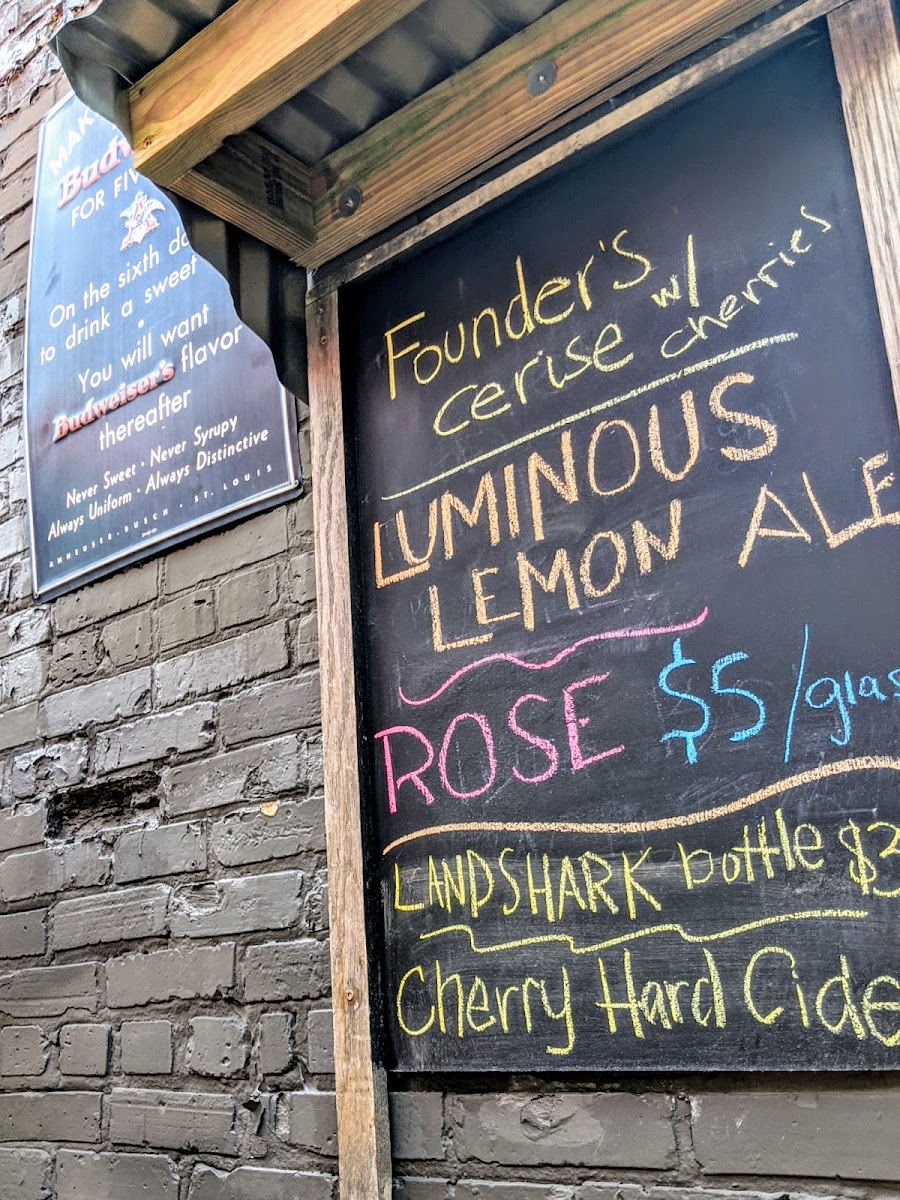 MAK
Budw
FOR FIV
On the sixth da
to drink a sweet
You will want
Budweiser's flavor
thereafter
Never Sweet · Never Syrupy
Always Uniform · Always Distinctive
ANHEUSER-BUSCH · ST. LOUIS
Founder's
cerise w/ cherries
LUMINOUS
LEMON ALE
ROSE $5/glas
LANDSHARK bottle $3
Cherry Hard Cide